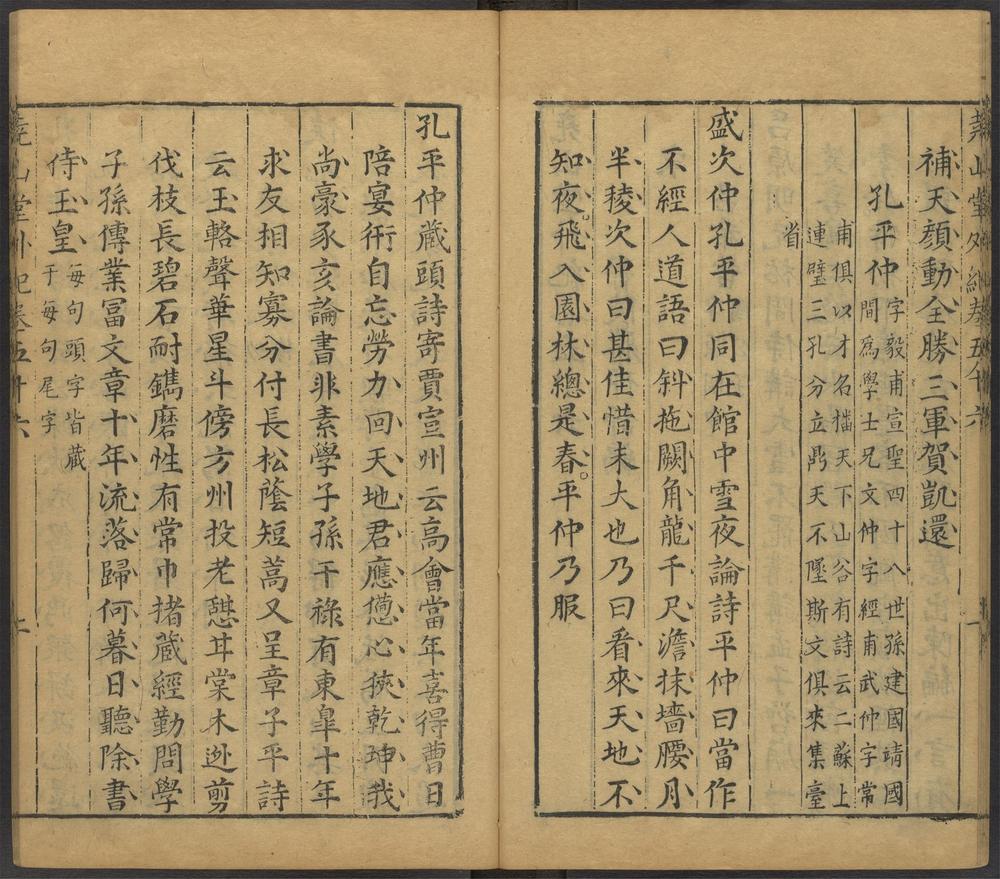 堯山堂外紀卷五十六
補天顏動全勝三軍賀凱還
孔平仲
字毅甫宣聖四十八世孫建國靖國
間爲學士兄文仲字經甫武仲字常
甫俱以才名擅天下山谷有詩云二蘇上
連璧三孔分立鼎天不墜斯文俱來集臺
省
盛次仲孔平仲同在館中雪夜論詩平仲曰當作
不經人道語曰斜拖闕角龍千尺澹抹墻腰月
半稜次仲曰甚佳惜未大也乃曰看來天地不
知夜飛入園林總是春平仲乃服
孔平仲藏頭詩寄賈宣州云高會當年喜得曹日
陪宴衎自忘勞力回天地君應憊心狹乾坤我
尚豪豕亥論書非素學子孫干祿有東皐十年
求友相知寡分付長松蔭短蒿又呈章子平詩
云玉輅聲華星斗傍方州投老憇甘棠木迯剪
伐枝長碧石耐鐫磨性有常巾揂藏經勤問學
子孫傳業冨文章十年流落歸何暮日聽除書
侍玉皇
每句頭字皆藏
于每句尾字
堯山堂外紀卷五十六